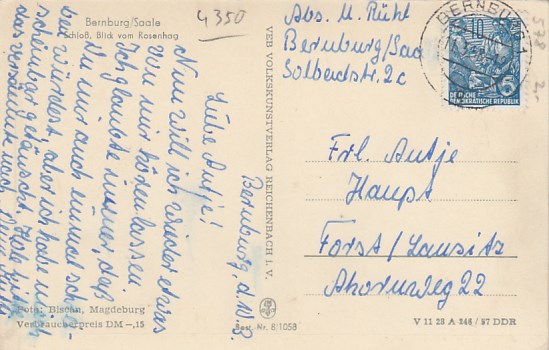 Bernburg/Saale
Schloß, Blick vom Rosenhag
4350
Bernburg, d.
Liebe Antje!
Nun will ich wieder etwas
von mir hören lassen
Ich glaubte immer, daß
Du mir auch einmal schrei-
ben würdest, aber ich habe mich
scheinbar getäuscht. Hole bitte
das versäumte nach,
Foto: Biscan, Magdeburg
Verbraucherpreis DM –,15
VEB VOLKSKUNSTVERLAG REICHENBACH i. V.
Best.-Nr. 8/1058
Abs. U. Rühl
Bernburg/Saale
Solbadstr. 2c
BERNBURG 1
10
5
DEUTSCHE
DEMOKRATISCHE REPUBLIK
578
Frl. Antje
Haupt
Forst/Lausitz
Ahornweg 22
V 11 28 A 346/57 DDR